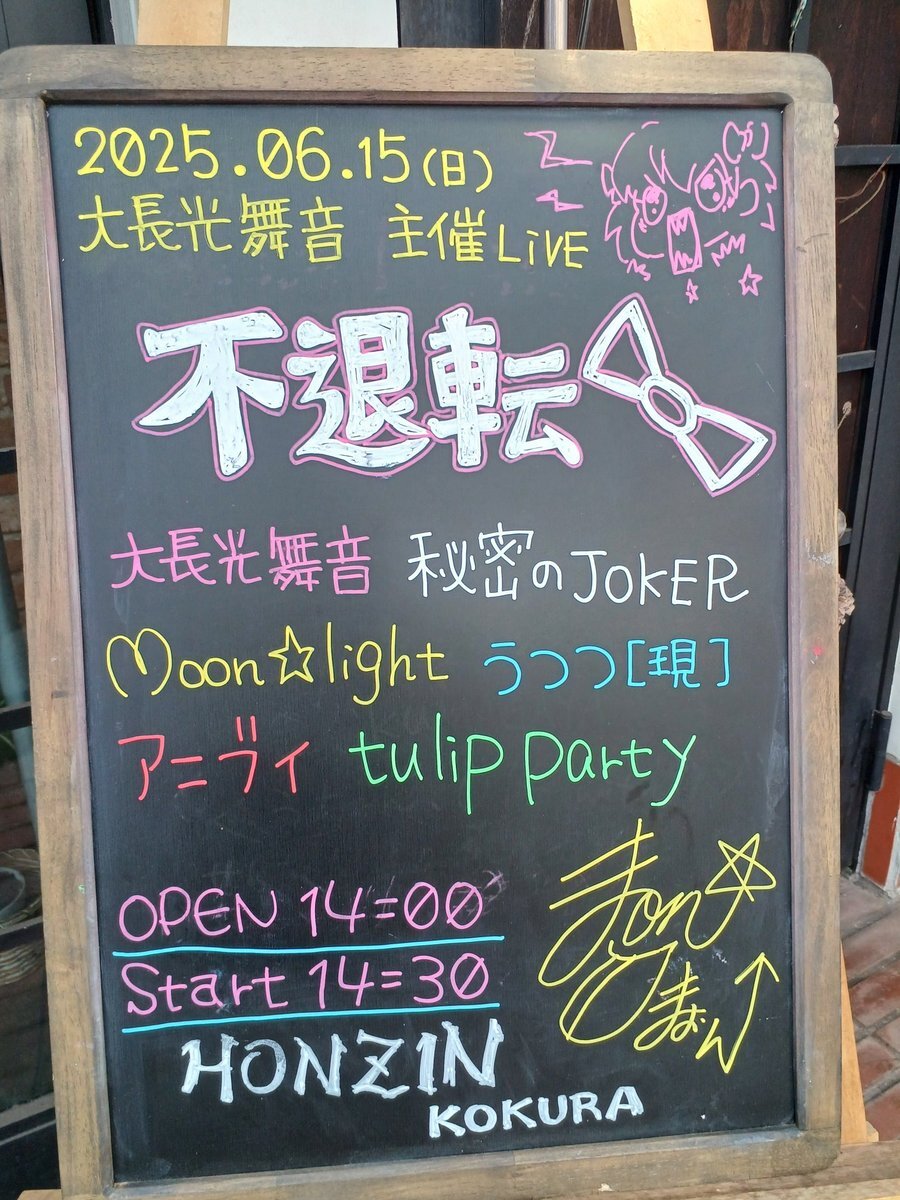 2025.06.15(日)
大長光舞音 主催LiVE
不退転
大長光舞音 秘密のJOKER
Moon☆light うつつ[現]
アニヴィ tulip party
OPEN 14=00
Start 14=30
HONZIN
KOKURA